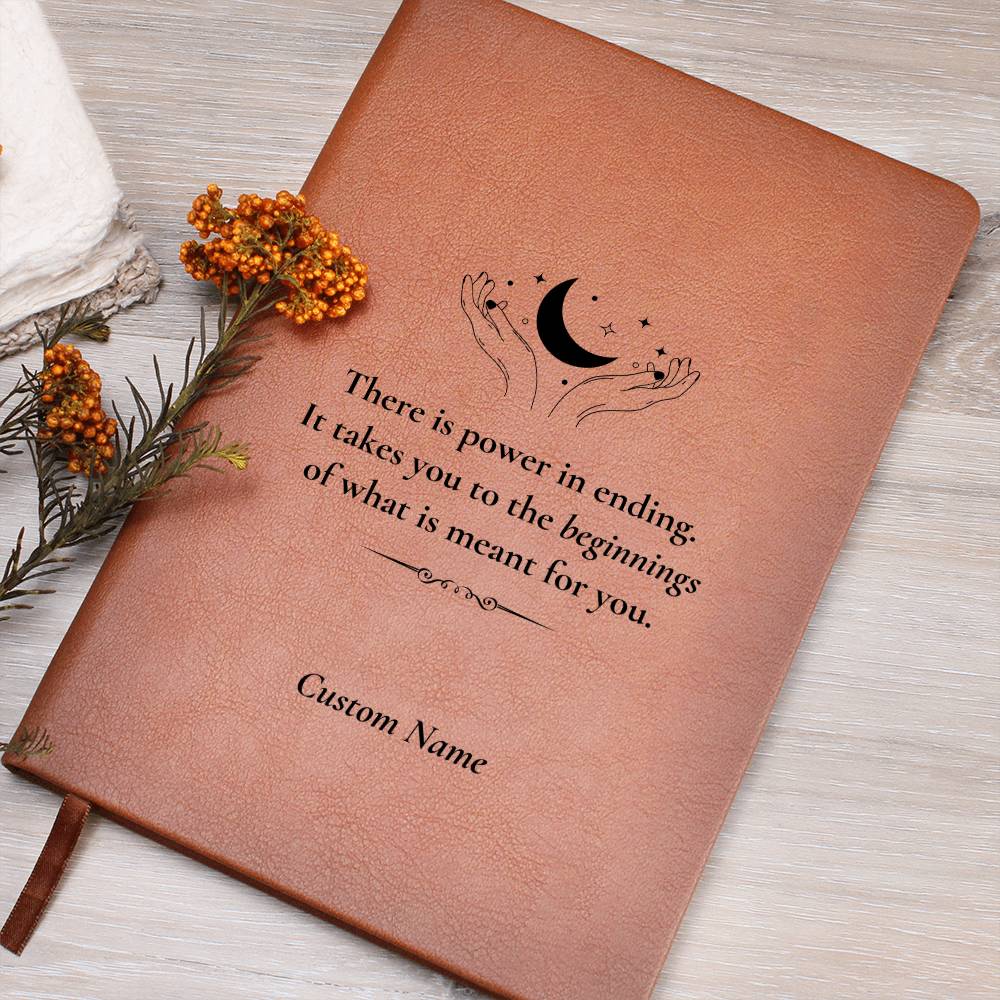 There is power in ending.
It takes you to the beginnings
of what is meant for you.
Custom Name